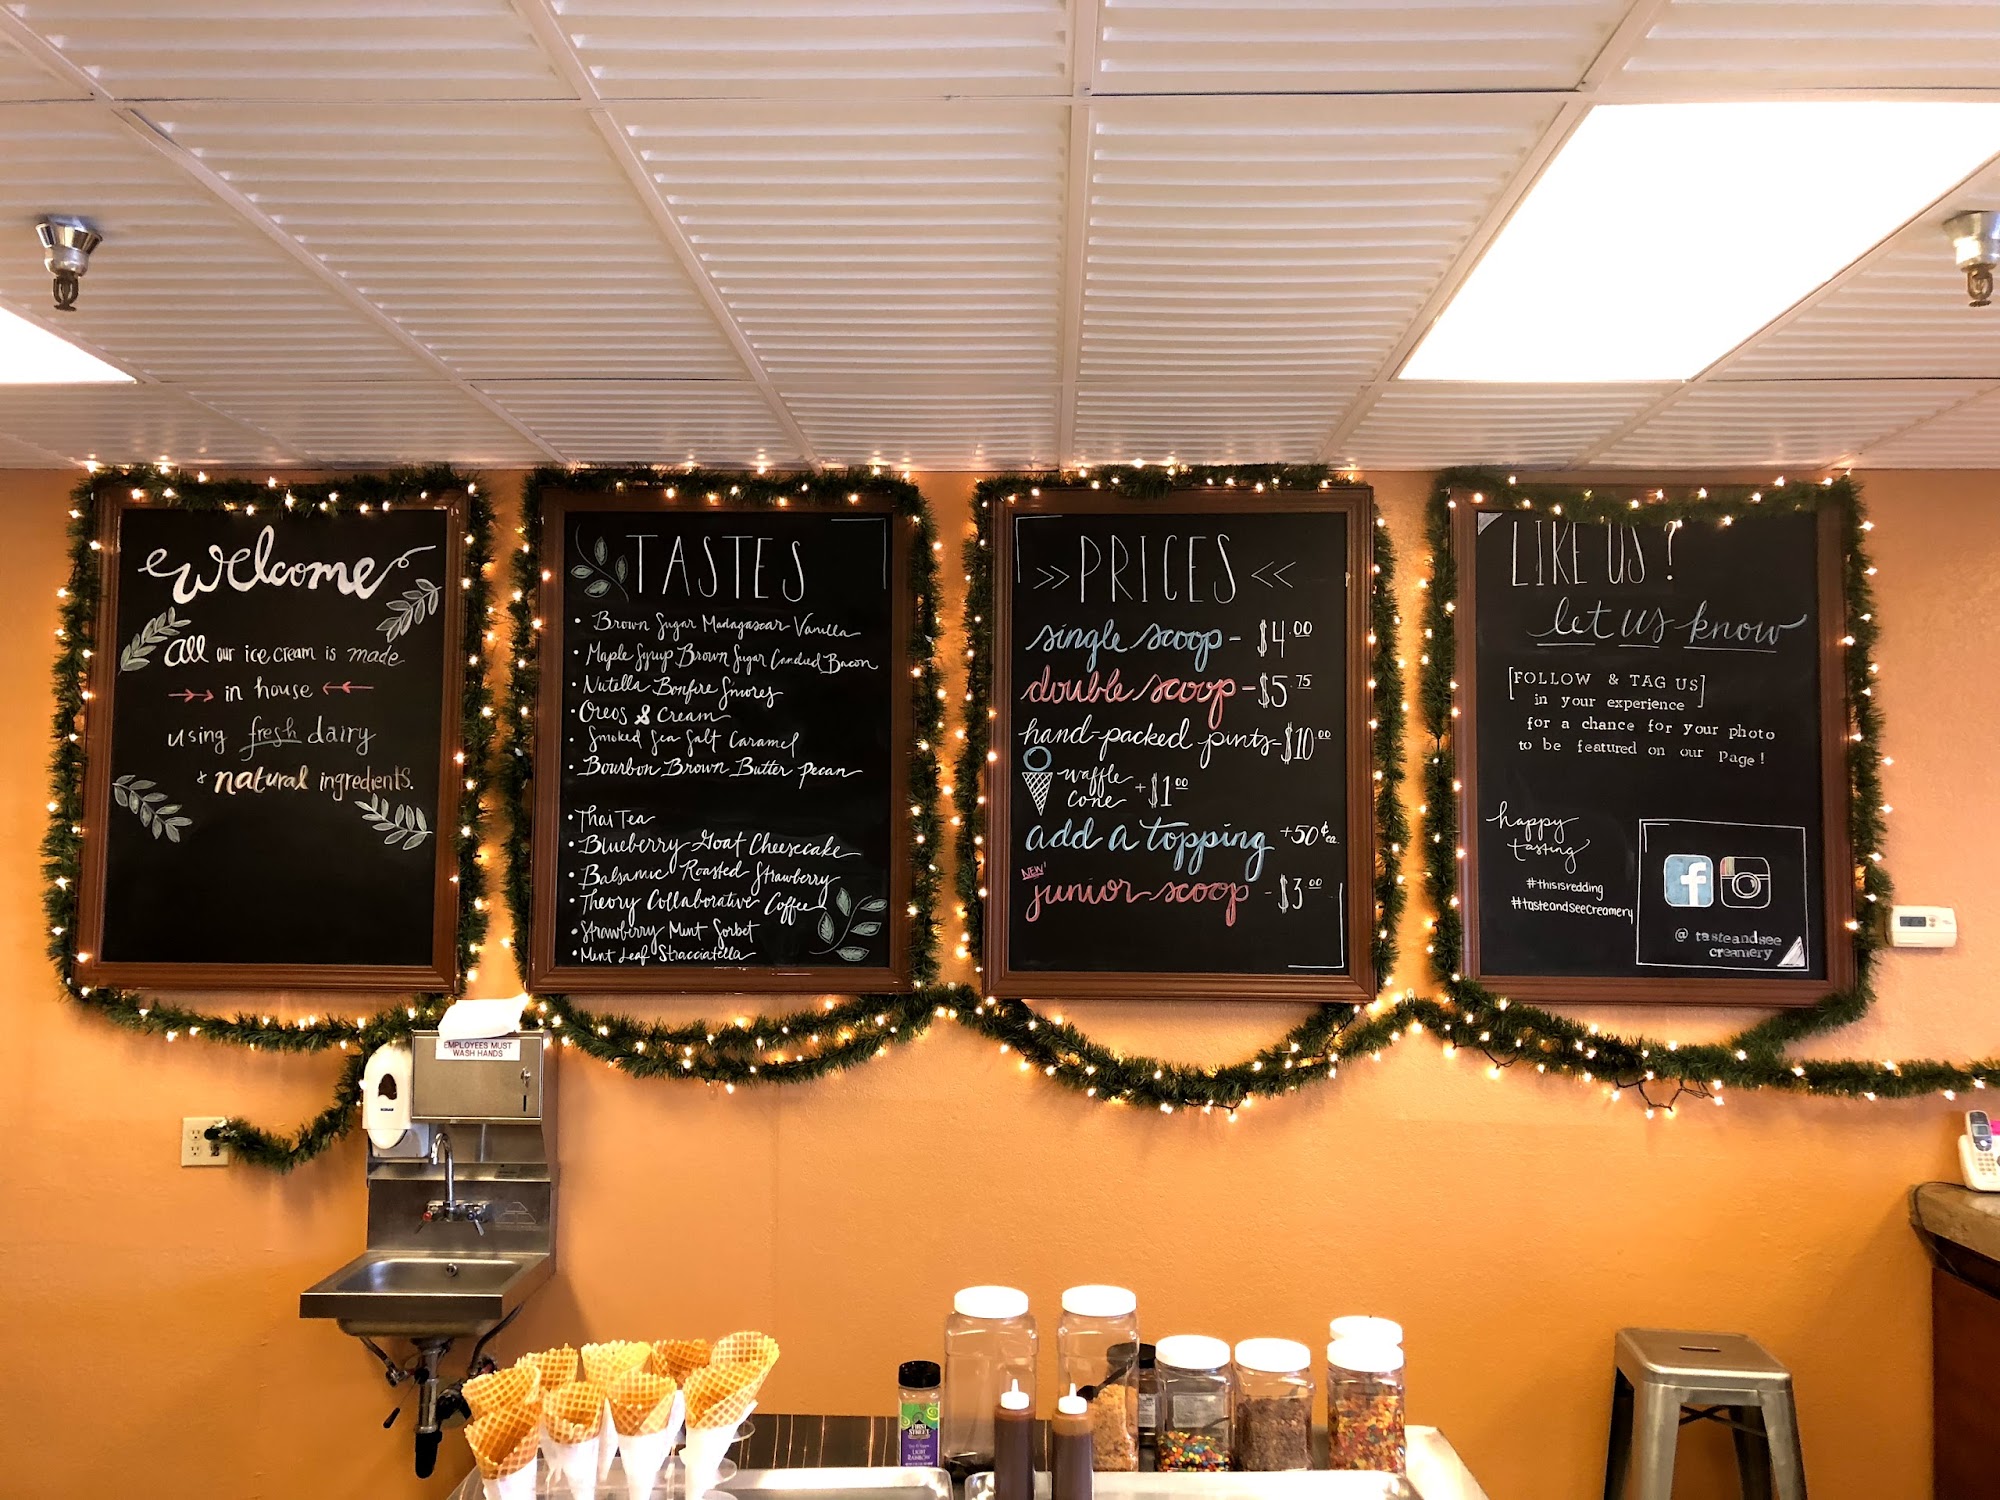 welcome
all our ice cream is made
in house
using fresh dairy
+ natural ingredients.
TASTES
• Brown Sugar Madagascar Vanilla
• Maple Syrup Brown Sugar Candied Bacon
• Nutella Bonfire S'mores
• Oreos & Cream
• Smoked Sea Salt Caramel
• Bourbon Brown Butter Pecan
• Thai Tea
• Blueberry Goat Cheesecake
• Balsamic Roasted Strawberry
• Theory Collaborative Coffee
• Strawberry Mint Sorbet
• Mint Leaf Stracciatella
>> PRICES <<
single scoop - $4.00
double scoop - $5.75
hand-packed pints - $10.00
waffle
cone + $1.00
add a topping +50¢ ea.
NEW!
junior scoop - $3.00
LIKE US?
let us know
[FOLLOW & TAG US]
in your experience
for a chance for your photo
to be featured on our Page!
happy
tasting
#thisisredding
#tasteandseecreamery
f
@ tasteandsee
creamery
EMPLOYEES MUST
WASH HANDS
FIRST
STREET
LIGHT
RAINBOW